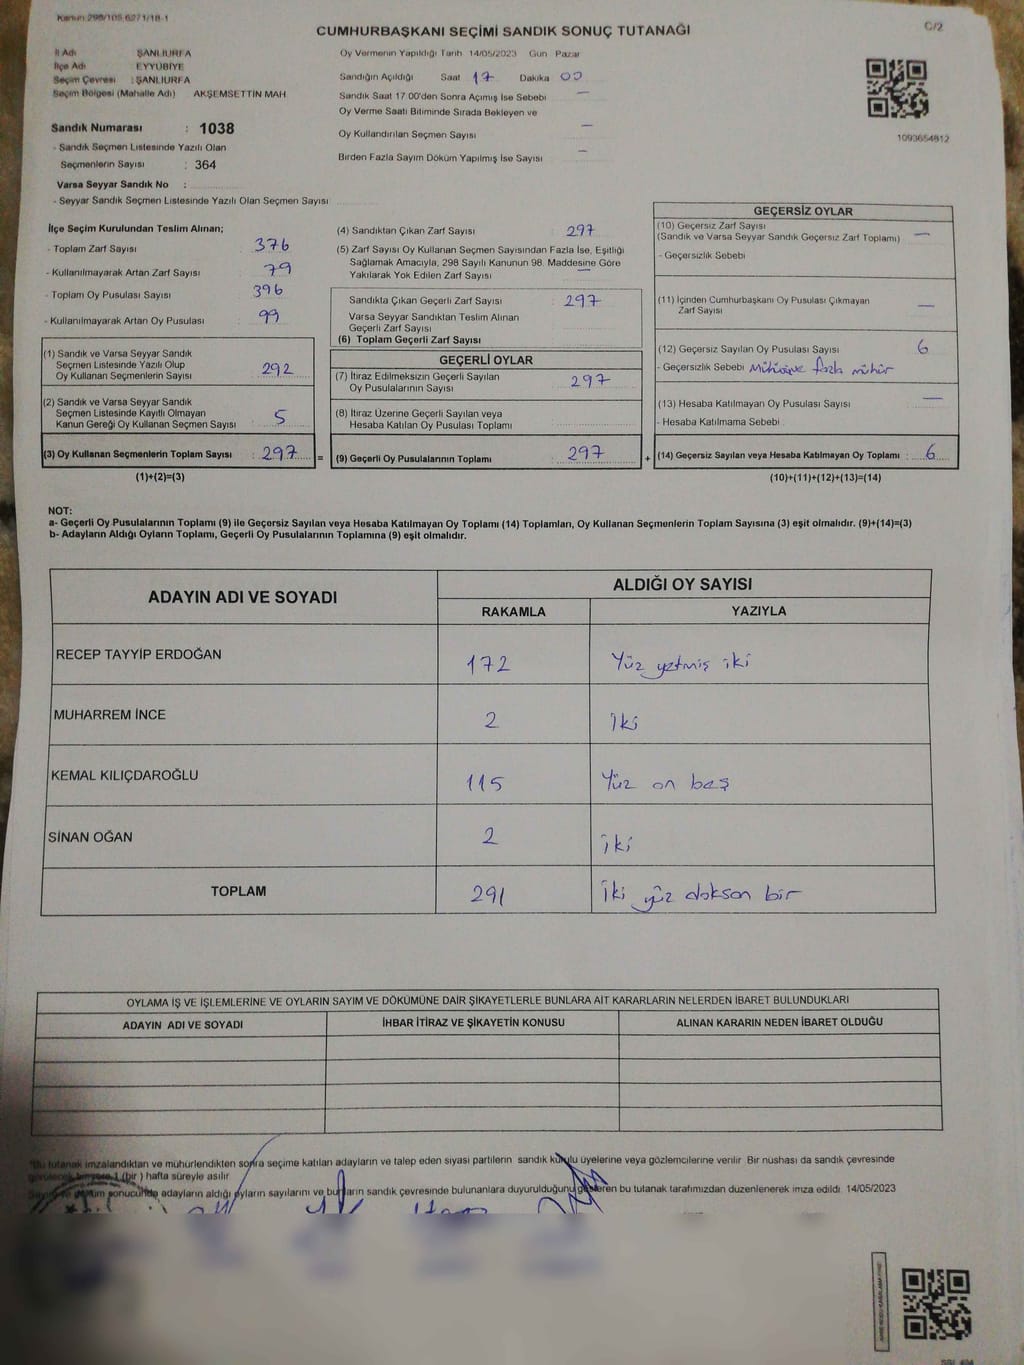 Kanun 298/105 62/1/18-1
C/2
CUMHURBAŞKANI SEÇİMİ SANDIK SONUÇ TUTANAĞI
İl Adı : ŞANLIURFA
İlçe Adı : EYYÜBİYE
Seçim Çevresi : ŞANLIURFA
Seçim Bölgesi (Mahalle Adı) AKŞEMSETTİN MAH.
Sandık Numarası : 1038
- Sandık Seçmen Listesinde Yazılı Olan
Seçmenlerin Sayısı : 364
Varsa Seyyar Sandık No :
- Seyyar Sandık Seçmen Listesinde Yazılı Olan Seçmen Sayısı
Oy Vermenin Yapıldığı Tarih 14/05/2023 Gün Pazar
Sandığın Açıldığı Saat 17 Dakika 00
Sandık Saat 17:00'den Sonra Açımış İse Sebebi —
Oy Verme Saati Bitiminde Sırada Bekleyen ve
Oy Kullandırılan Seçmen Sayısı —
Birden Fazla Sayım Döküm Yapılmış İse Sayısı —
1093654812
İlçe Seçim Kurulundan Teslim Alınan;
- Toplam Zarf Sayısı : 376
- Kullanılmayarak Artan Zarf Sayısı : 79
- Toplam Oy Pusulası Sayısı : 396
- Kullanılmayarak Artan Oy Pusulası : 99
(1) Sandık ve Varsa Seyyar Sandık
Seçmen Listesinde Yazılı Olup
Oy Kullanan Seçmenlerin Sayısı : 292
(2) Sandık ve Varsa Seyyar Sandık
Seçmen Listesinde Kayıtlı Olmayan
Kanun Gereği Oy Kullanan Seçmen Sayısı : 5
(3) Oy Kullanan Seçmenlerin Toplam Sayısı : 297
(1)+(2)=(3)
=
(4) Sandıktan Çıkan Zarf Sayısı : 297
(5) Zarf Sayısı Oy Kullanan Seçmen Sayısından Fazla İse, Eşitliği
Sağlamak Amacıyla, 298 Sayılı Kanunun 98. Maddesine Göre
Yakılarak Yok Edilen Zarf Sayısı : —
Sandıkta Çıkan Geçerli Zarf Sayısı : 297
Varsa Seyyar Sandıktan Teslim Alınan
Geçerli Zarf Sayısı
(6) Toplam Geçerli Zarf Sayısı
GEÇERLİ OYLAR
(7) İtiraz Edilmeksizin Geçerli Sayılan
Oy Pusulalarının Sayısı : 297
(8) İtiraz Üzerine Geçerli Sayılan veya
Hesaba Katılan Oy Pusulası Toplamı
(9) Geçerli Oy Pusulalarının Toplamı : 297
+
GEÇERSİZ OYLAR
(10) Geçersiz Zarf Sayısı
(Sandık ve Varsa Seyyar Sandık Geçersiz Zarf Toplamı) —
- Geçersizlik Sebebi
(11) İçinden Cumhurbaşkanı Oy Pusulası Çıkmayan
Zarf Sayısı —
(12) Geçersiz Sayılan Oy Pusulası Sayısı 6
- Geçersizlik Sebebi fazla mühür
(13) Hesaba Katılmayan Oy Pusulası Sayısı —
- Hesaba Katılmama Sebebi
(14) Geçersiz Sayılan veya Hesaba Katılmayan Oy Toplamı : 6
(10)+(11)+(12)+(13)=(14)
NOT:
a- Geçerli Oy Pusulalarının Toplamı (9) ile Geçersiz Sayılan veya Hesaba Katılmayan Oy Toplamı (14) Toplamları, Oy Kullanan Seçmenlerin Toplam Sayısına (3) eşit olmalıdır. (9)+(14)=(3)
b- Adayların Aldığı Oyların Toplamı, Geçerli Oy Pusulalarının Toplamına (9) eşit olmalıdır.
ADAYIN ADI VE SOYADI
ALDIĞI OY SAYISI
RAKAMLA YAZIYLA
RECEP TAYYİP ERDOĞAN 172 Yüz yetmiş iki
MUHARREM İNCE 2 İki
KEMAL KILIÇDAROĞLU 115 Yüz on beş
SİNAN OĞAN 2 iki
TOPLAM 291 İki yüz doksan bir
OYLAMA İŞ VE İŞLEMLERİNE VE OYLARIN SAYIM VE DÖKÜMÜNE DAİR ŞİKAYETLERLE BUNLARA AİT KARARLARIN NELERDEN İBARET BULUNDUKLARI
ADAYIN ADI VE SOYADI İHBAR İTİRAZ VE ŞİKAYETİN KONUSU ALINAN KARARIN NEDEN İBARET OLDUĞU
Bu tutanak imzalandıktan ve mühürlendikten sonra seçime katılan adayların ve talep eden siyasi partilerin sandık kurulu üyelerine veya gözlemcilerine verilir. Bir nüshası da sandık çevresinde
1 (bir ) hafta süreyle asılır
sonucunda adayların aldığı oyların sayılarını ve bunların sandık çevresinde bulunanlara duyurulduğunu gösteren bu tutanak tarafımızdan düzenlenerek imza edildi. 14/05/2023